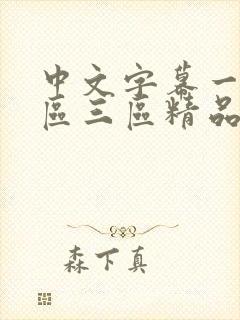 中文字幕一
區三區精品
森下真